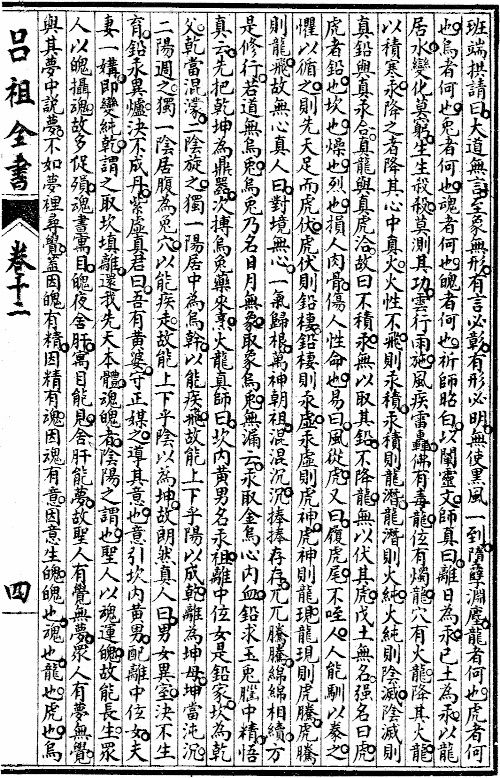 班端拱請曰大道無言至象無形有言必彰有形必明無使黑風一到隋孽淵塵龍者何也虎者何
也烏者何也兔者何也魂者何也魄者何也祈師昭曰以闡靈文師真曰離日為汞己土為汞以龍
居水變化莫躬生生殺殺莫測其功雲行雨施風疾雷轟備有毒龍位有燭龍穴有火龍降其火龍
以積寒汞降之者降其心中真火火性不飛則汞積汞積則龍潛龍潛則火純火純則陰滅陰滅則
真鉛與真汞合真龍與真虎洽故曰不積汞無以取其鉛不降龍無以伏其虎戊土無名强名曰虎
虎者鉛也坎也燥也烈也損人肉骨傷人性命也易曰風從虎又曰履虎尾不咥人人能馴以豢之
懼以循之則先天足而虎伏虎伏則鉛棲鉛棲則汞虛汞虛則虎神虎神則龍現龍現則虎騰虎騰
則龍飛故無心真人曰對境無心一氣歸根萬神朝祖混混沉沉捧捧存存兀兀騰騰綿綿相續方
是修行若道無烏兔烏兔乃名日月無象取象烏兔無漏云汞取金烏心内血鉛求玉兔膛中精悟
真云先把乾坤為鼎器次摶烏兔藥來烹火龍真師曰坎内黄男名汞祖離中位女是鉛家坎為乾
父乾當混濛二陰旋之獨一陽居中為烏䡖以能疾飛故能上下乎陽以成乾離為坤母坤當沌沉
二陽週之獨一陰居腹為兔穴以能疾走故能上下乎陰以為坤故朗然真人曰男女異室決不生
育鉛汞異爐決不成丹紫虛真君曰吾有黄婆守正媒之導其意也意引坎内黄男配離中位女夫
妻一媾即變純乾謂之取坎填離還我先天本體魂魄者陰陽之謂也聖人以魂運魄故能長生眾
人以魄攝魂故多促殞魂晝寓目魄夜舍肝寓目能見舍肝能夢故聖人有覺無夢眾人有夢無覺
與其夢中説夢不如夢裡尋覺蓋因魄有精因精有魂因魂有意因意生魄魄也魂也龍也虎也烏
吕祖全書
卷十二
四